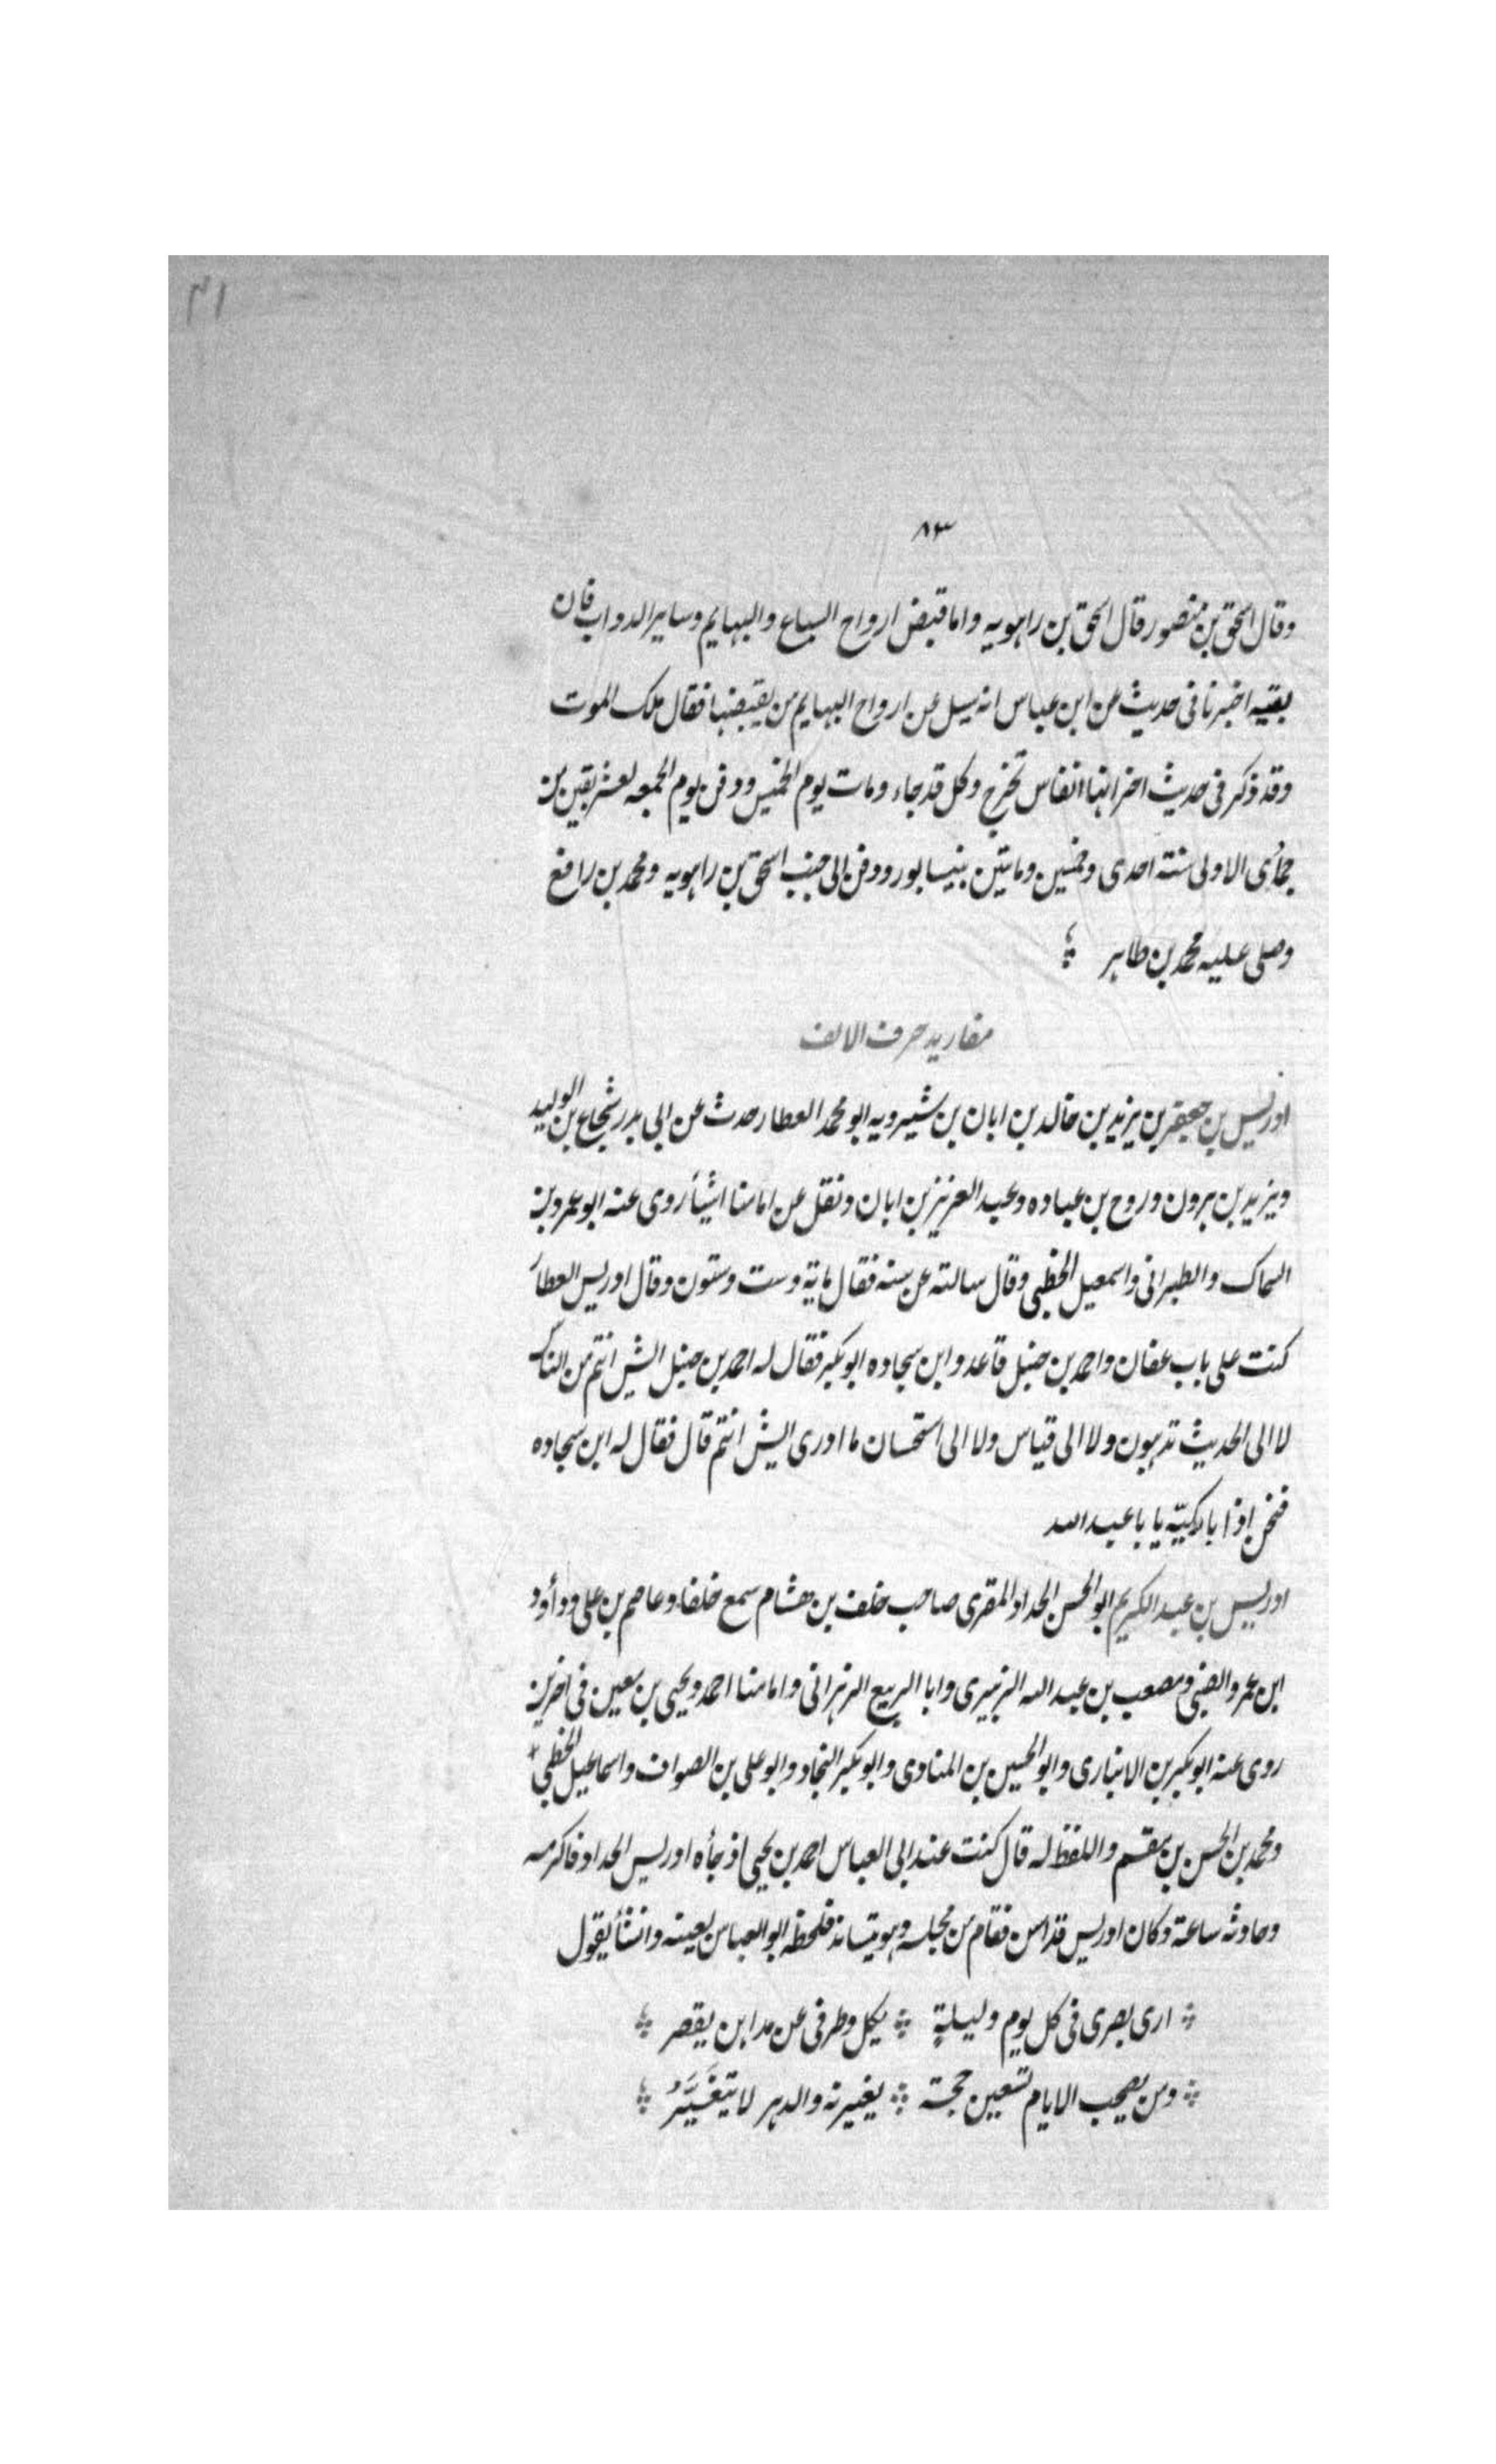 ٤١
٨٣
وقال اسحق بن منصور قال اسحق بن راهويه واما قبض ارواح السباع والبهايم وساير الدواب فان
بقيه اخبرنا فى حديث عن ابن عباس انه سيل عن ارواح البهايم من يقبضها فقال ملك الموت
وقد ذكر فى حديث اخر انها انفاس تخرج وكل قد جاء ومات يوم الخميس ودفن يوم الجمعه لعشر بقين من
جمادى الاولى سنة احدى وخمسين وماتين بنيسابور ودفن الى جنب اسحق بن راهويه ومحمد بن رافع
وصلى عليه محمد بن طاهر
مفاريد حرف الالف
ادريس بن جعفر بن يزيد بن خالد بن ابان بن شيرويه ابو محمد العطار حدث عن ابى بدر شجاع بن الوليد
ويزيد بن هرون وروح بن عباده وعبد العزيز بن ابان ونقل عن امامنا اشيأ روى عنه ابو عمرو بن
السماك والطبرانى واسمعيل الخطبى وقال سالته عن سنه فقال ماية وست وستون وقال ادريس العطار
كنت على باب عفان واحمد بن حنبل قاعد وابن سجاده ابو بكر فقال له احمد بن حنبل اليش انتم من الناس
لا الى الحديث تذهبون ولا الى قياس ولا الى استحسان ما ادرى اليش انتم قال فقال له ابن سجاده
فنحن اذا يا باعبد الله
ادريس بن عبد الكريم ابو الحسن الحداد المقرى صاحب خلف بن هشام سمع خلفا وعاصم بن على ودأود
ابن عمرو الضبى ومصعب بن عبد الله الزبيرى وابا الربيع الزهرانى وامامنا احمد ويحيى بن معين فى اخرين
روى عنه ابو بكر بن الانبارى وابو الحسين بن المنادى وابو بكر النجاد وابو على بن الصواف واسماعيل الخطبى
ومحمد بن الحسن بن مقسم واللفظ له قال كنت عند ابى العباس احمد بن يحيى اذ جأه ادريس الحداد فاكرمه
وحادثه ساعة وكان ادريس قد اسن فقام من مجلسه وهو يتساند فلحظه ابو العباس بعينه وانشأ يقول
ارى بصرى فى كل يوم وليلة يكل وطرفى عن مداهن يقصر
ومن يصحب الايام تسعين حجة يغيرنه والدهر لا يتغَيَّرُ